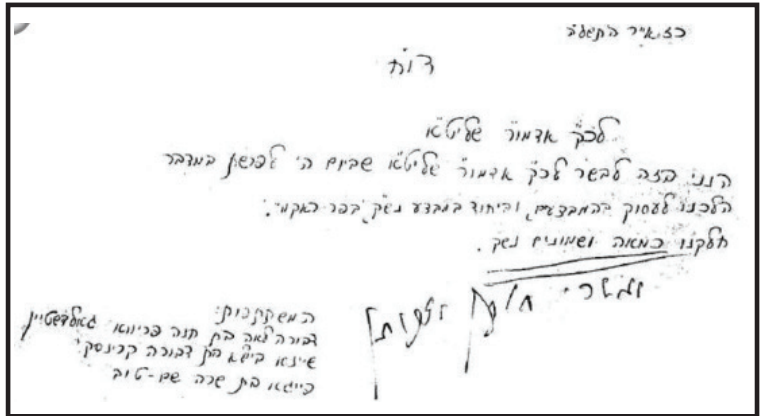 כז אייר ה'תשל"ה
דו"ח
לכ"ק אדמו"ר שליט"א
הנני בזה לבשר לכ"ק אדמו"ר שליט"א שביום ה' לפרשת במדבר
הלכנו לעסוק בהמבצעים, וביחוד במבצע נש"ק, בפר האקמי.
חלקנו כמאה ושמונים נש"ק.
חלקם
המשתתפות:
דבורה לאה בת חנה פריווא גאלדשטיין
שיינא ביילא בת דבורה קרינסקי
פייגא בת שרה שם-טוב